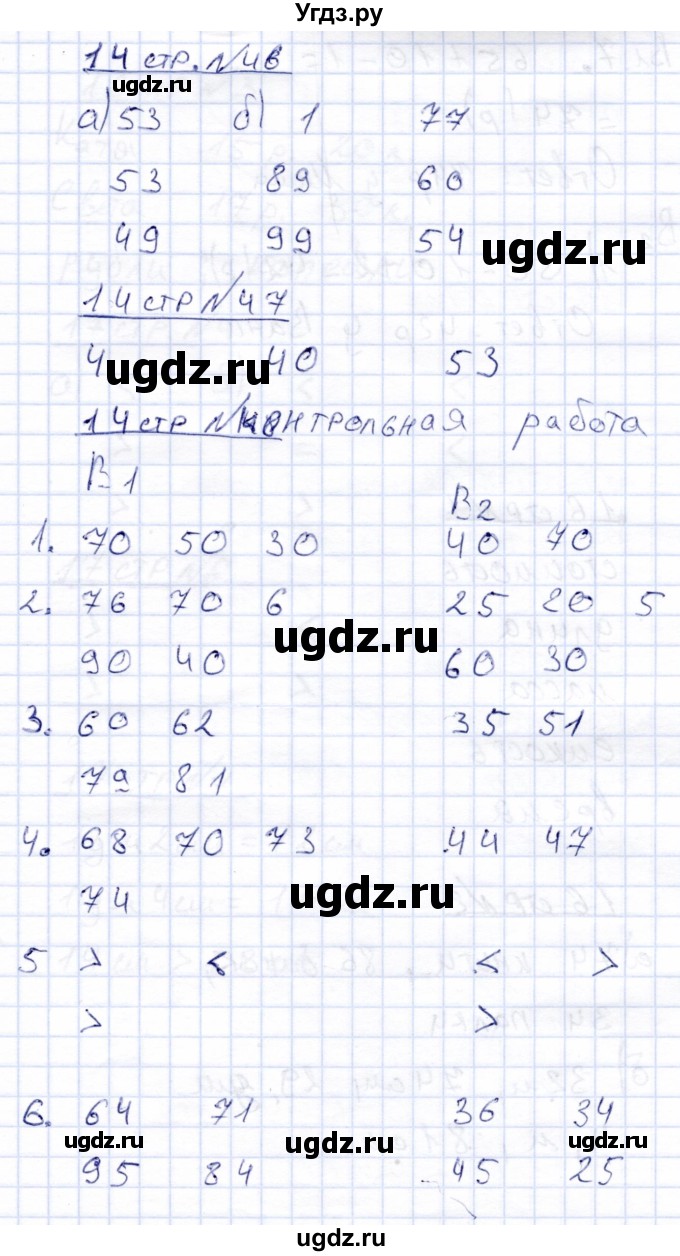 Угдз.ру
14 стр. №46
ugdz.ru
а) 53 б) 1 77
53 89 60
49 99 54
ugdz.ru
14 стр №47
4 40 53
ugdz.ru
14 стр № контрольная работа
В1 В2
1. 70 50 30 40 70
2. 76 70 6 25 20 5
ugdz.ru
90 40 60 30
3. 60 62 35 51
79 81
4. 68 70 73 44 47
74
ugdz.ru
5 > < < >
> >
6. 64 71 36 34
ugdz.ru ugdz.ru ugdz.ru
95 84 45 25
ugdz.ru